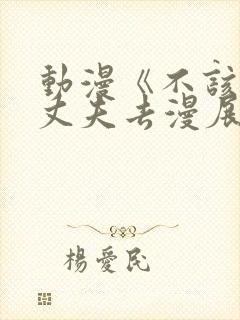 動漫《不該
丈夫去漫展
楊愛民